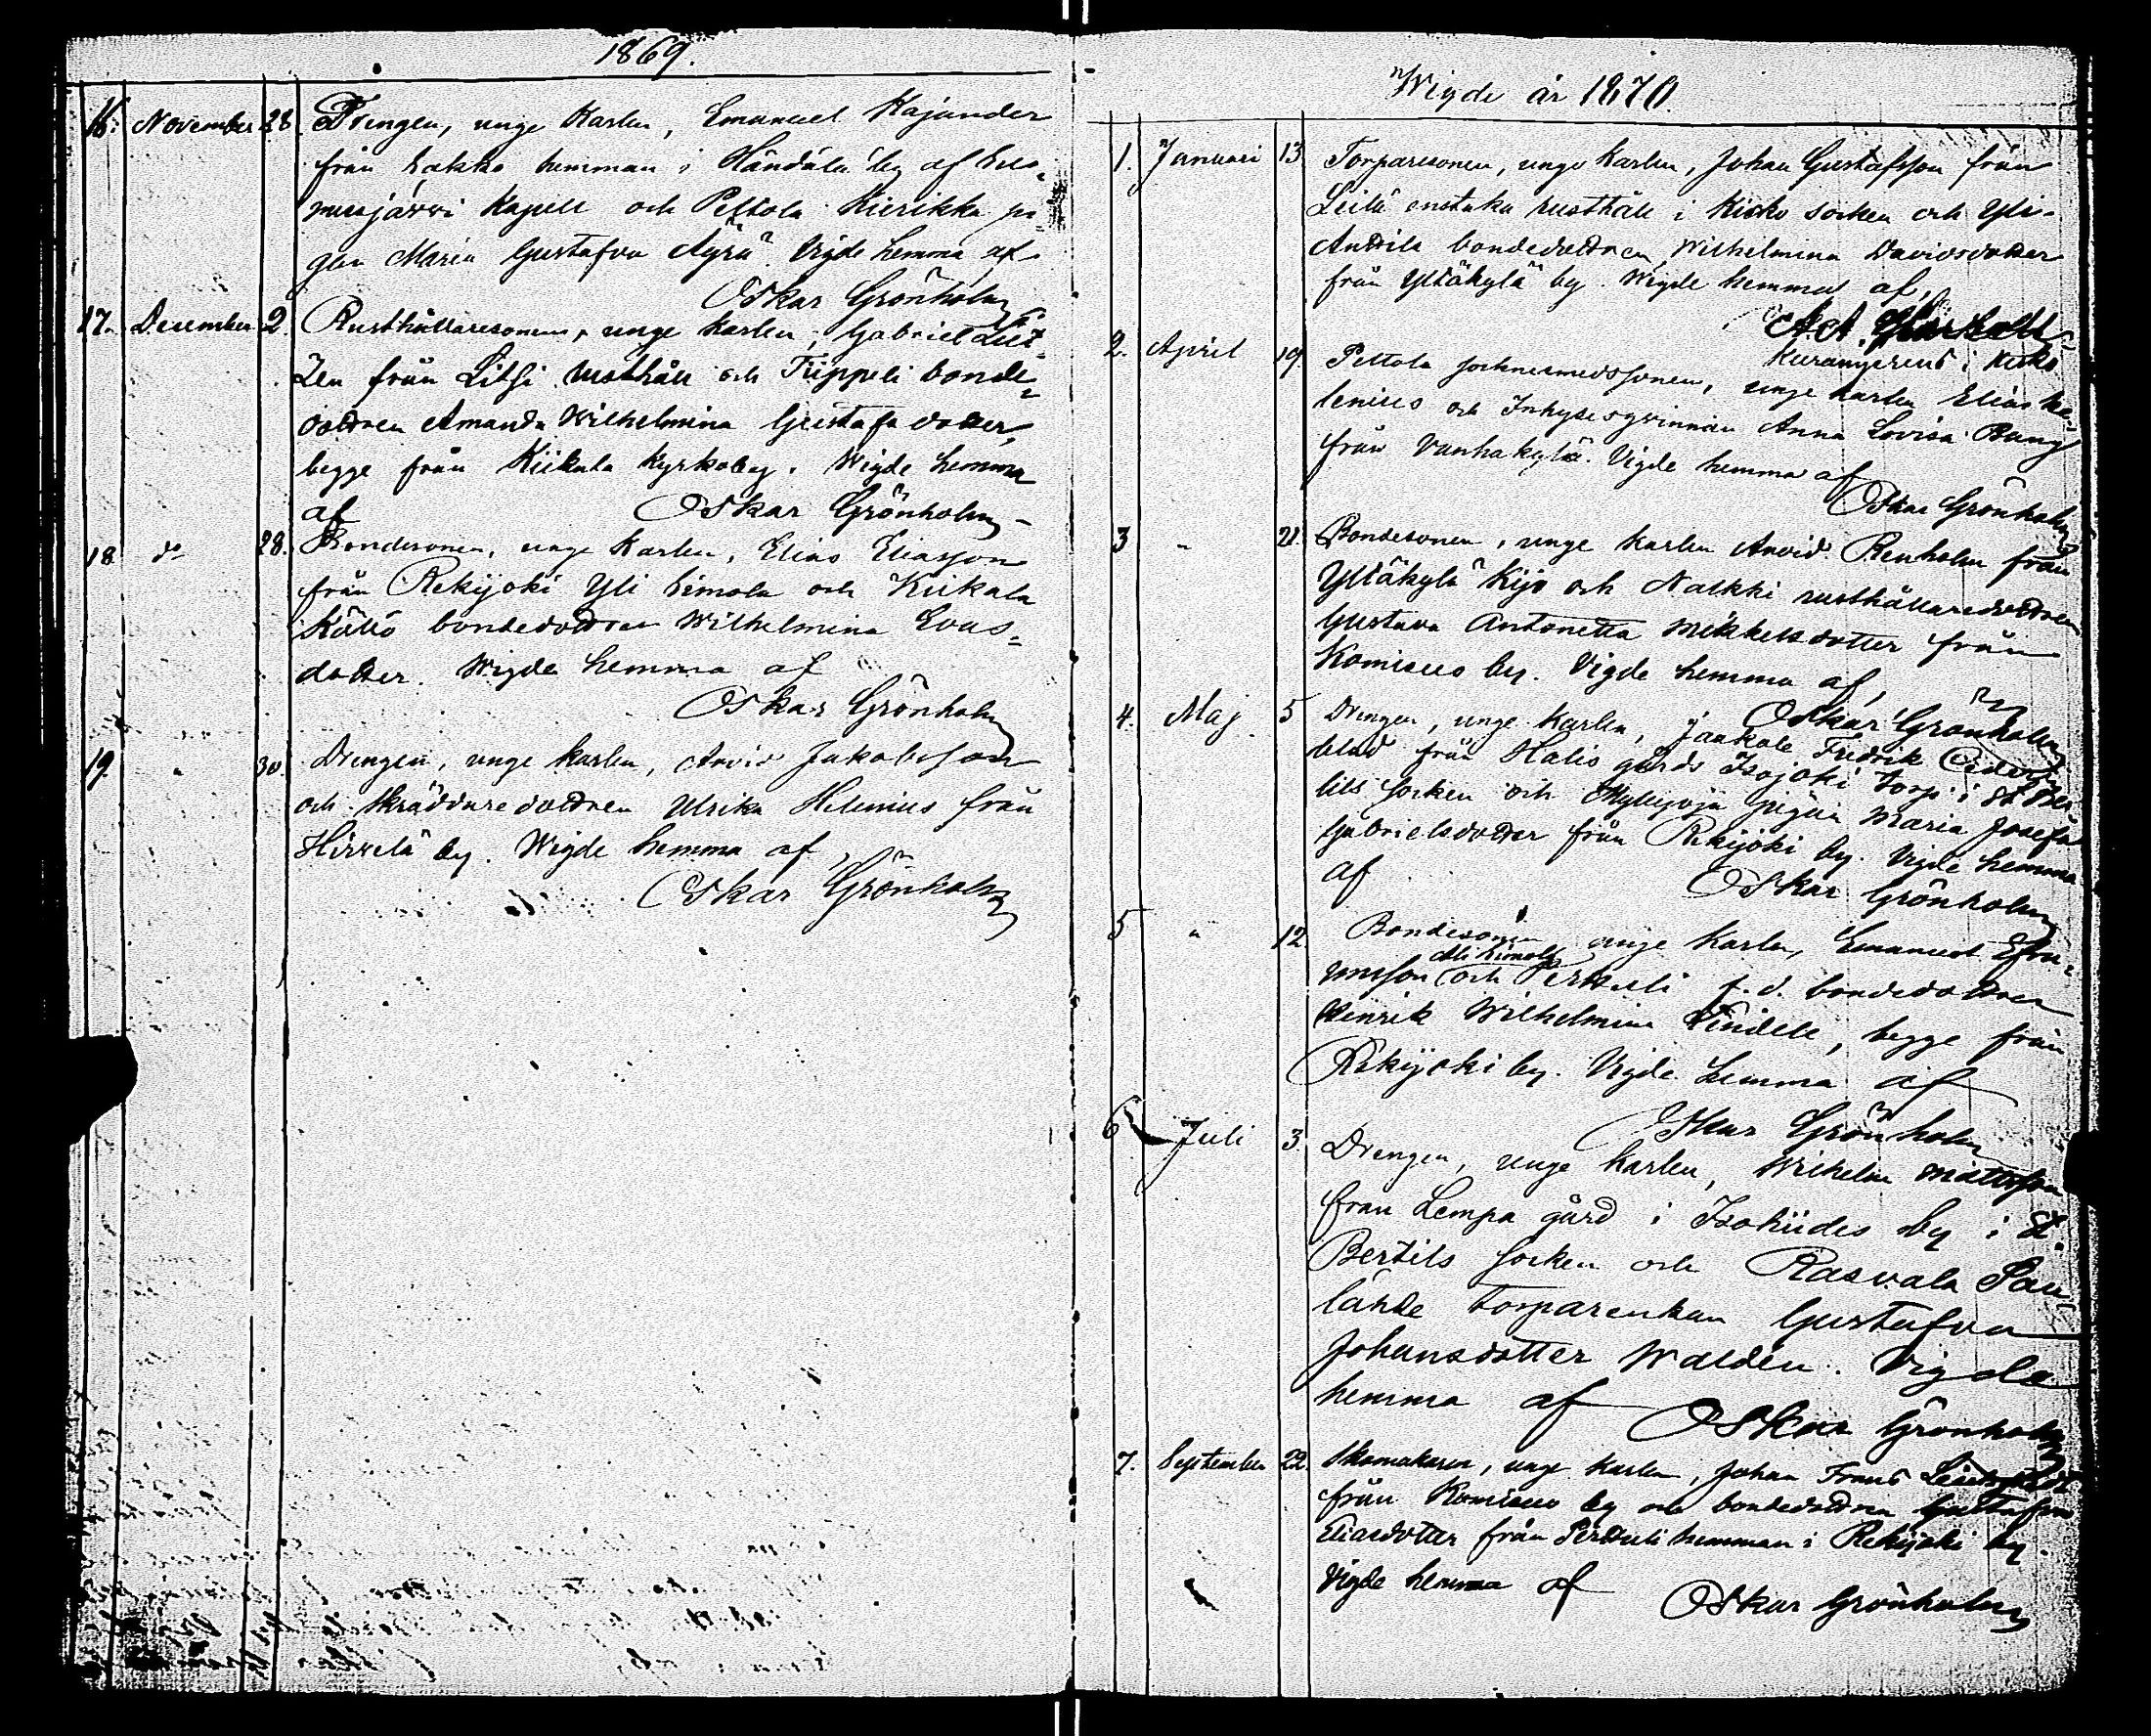 1869.
16. November 28. Drengen, unge Karlen, Emanuel Kajander
från hemman i Händälä by af Suo-
musjärvi Kapell och Peltola Kierikka pi-
gan Maria Gustafva Äyrä. Vigde hemma af
Oskar Grönholm
17. December 2. Rusthållaresonen, unge Karlen, Gabriel
från Litsi rusthåll och Trippeli bonde-
dottren Amanda Wilhelmina Gustafsdotter,
begge från Kiikala Kyrkoby. Wigde hemma
af Oskar Grönholm
18 do 28. Bondesonen, unge Karlen, Elias Eliasson
från Rekijoki Yli Simola och Kiikala
Köllö bondedottren Wilhelmina Evas-
dotter. Wigde hemma af
Oskar Grönholm
19. " 30. Drengen, unge Karlen, Arvid Jakobsson
och Skräddaredottren Ulrika Helenius från
Hirvelä by. Wigde hemma af,
Oskar Grönholm
Wigde år 1870.
1. Januari 13 Torparesonen, unge Karlen, Johan Gustafsson från
Leilä enstaka rusthåll i Kisko socken och Yli-
Anttila bondedottren Wilhelmina Davidsdotter
från Yltäkylä by. Wigde hemma af,
A. A.
i Kisko
2. April 19. Peltola sockensmedssonen, unge Karlen Elias He-
lenius och Inhysesqvinnan Anna Lovisa Bang
från Vanhakylä. Vigde hemma af
Oskar Grönholm
3 " 21. Bondesonen, unge Karlen Arvid Renholm från
Yltäkylä Kijo och Nalkki rusthållaredottren
Gustava Antonetta Mikkelsdotter från
Komisuo by. Vigde hemma af,
Oskar Grönholm
4. Maj 5 Drengen, unge Karlen, Fredrik Ceder-
blad från Halis gårds Isojoki torp i St Ber-
tils socken och Myllyoja pigan Maria Josefa
Gabrielsdotter från Rekijoki by. Vigde hemma
af Oskar Grönholm
5 " 12. Bondesonen unge Karlen, Emanuel Efra-
Ali Simola
imsson och Perttuli f.d. bondedottren
Henrik Wilhelmina Lindell, begge från
Rekijoki by. Vigde hemma af
Oskar Grönholm
6 Juli 3. Drengen, unge Karlen, Wilhelm Mattsson
från Lempa gård i Isohiides by i St.
Bertils socken och Rasvala Sau-
lähde torparenkan Gustafva
Johansdotter Walden. Vigde
hemma af Oskar Grönholm
7. September 22. Skomakaren, unge Karlen, Johan Frans
från Komisuo by och bondedottren Gustafva
Eliasdotter från Perttuli hemman i Rekijoki by.
Vigde hemma af Oskar Grönholm